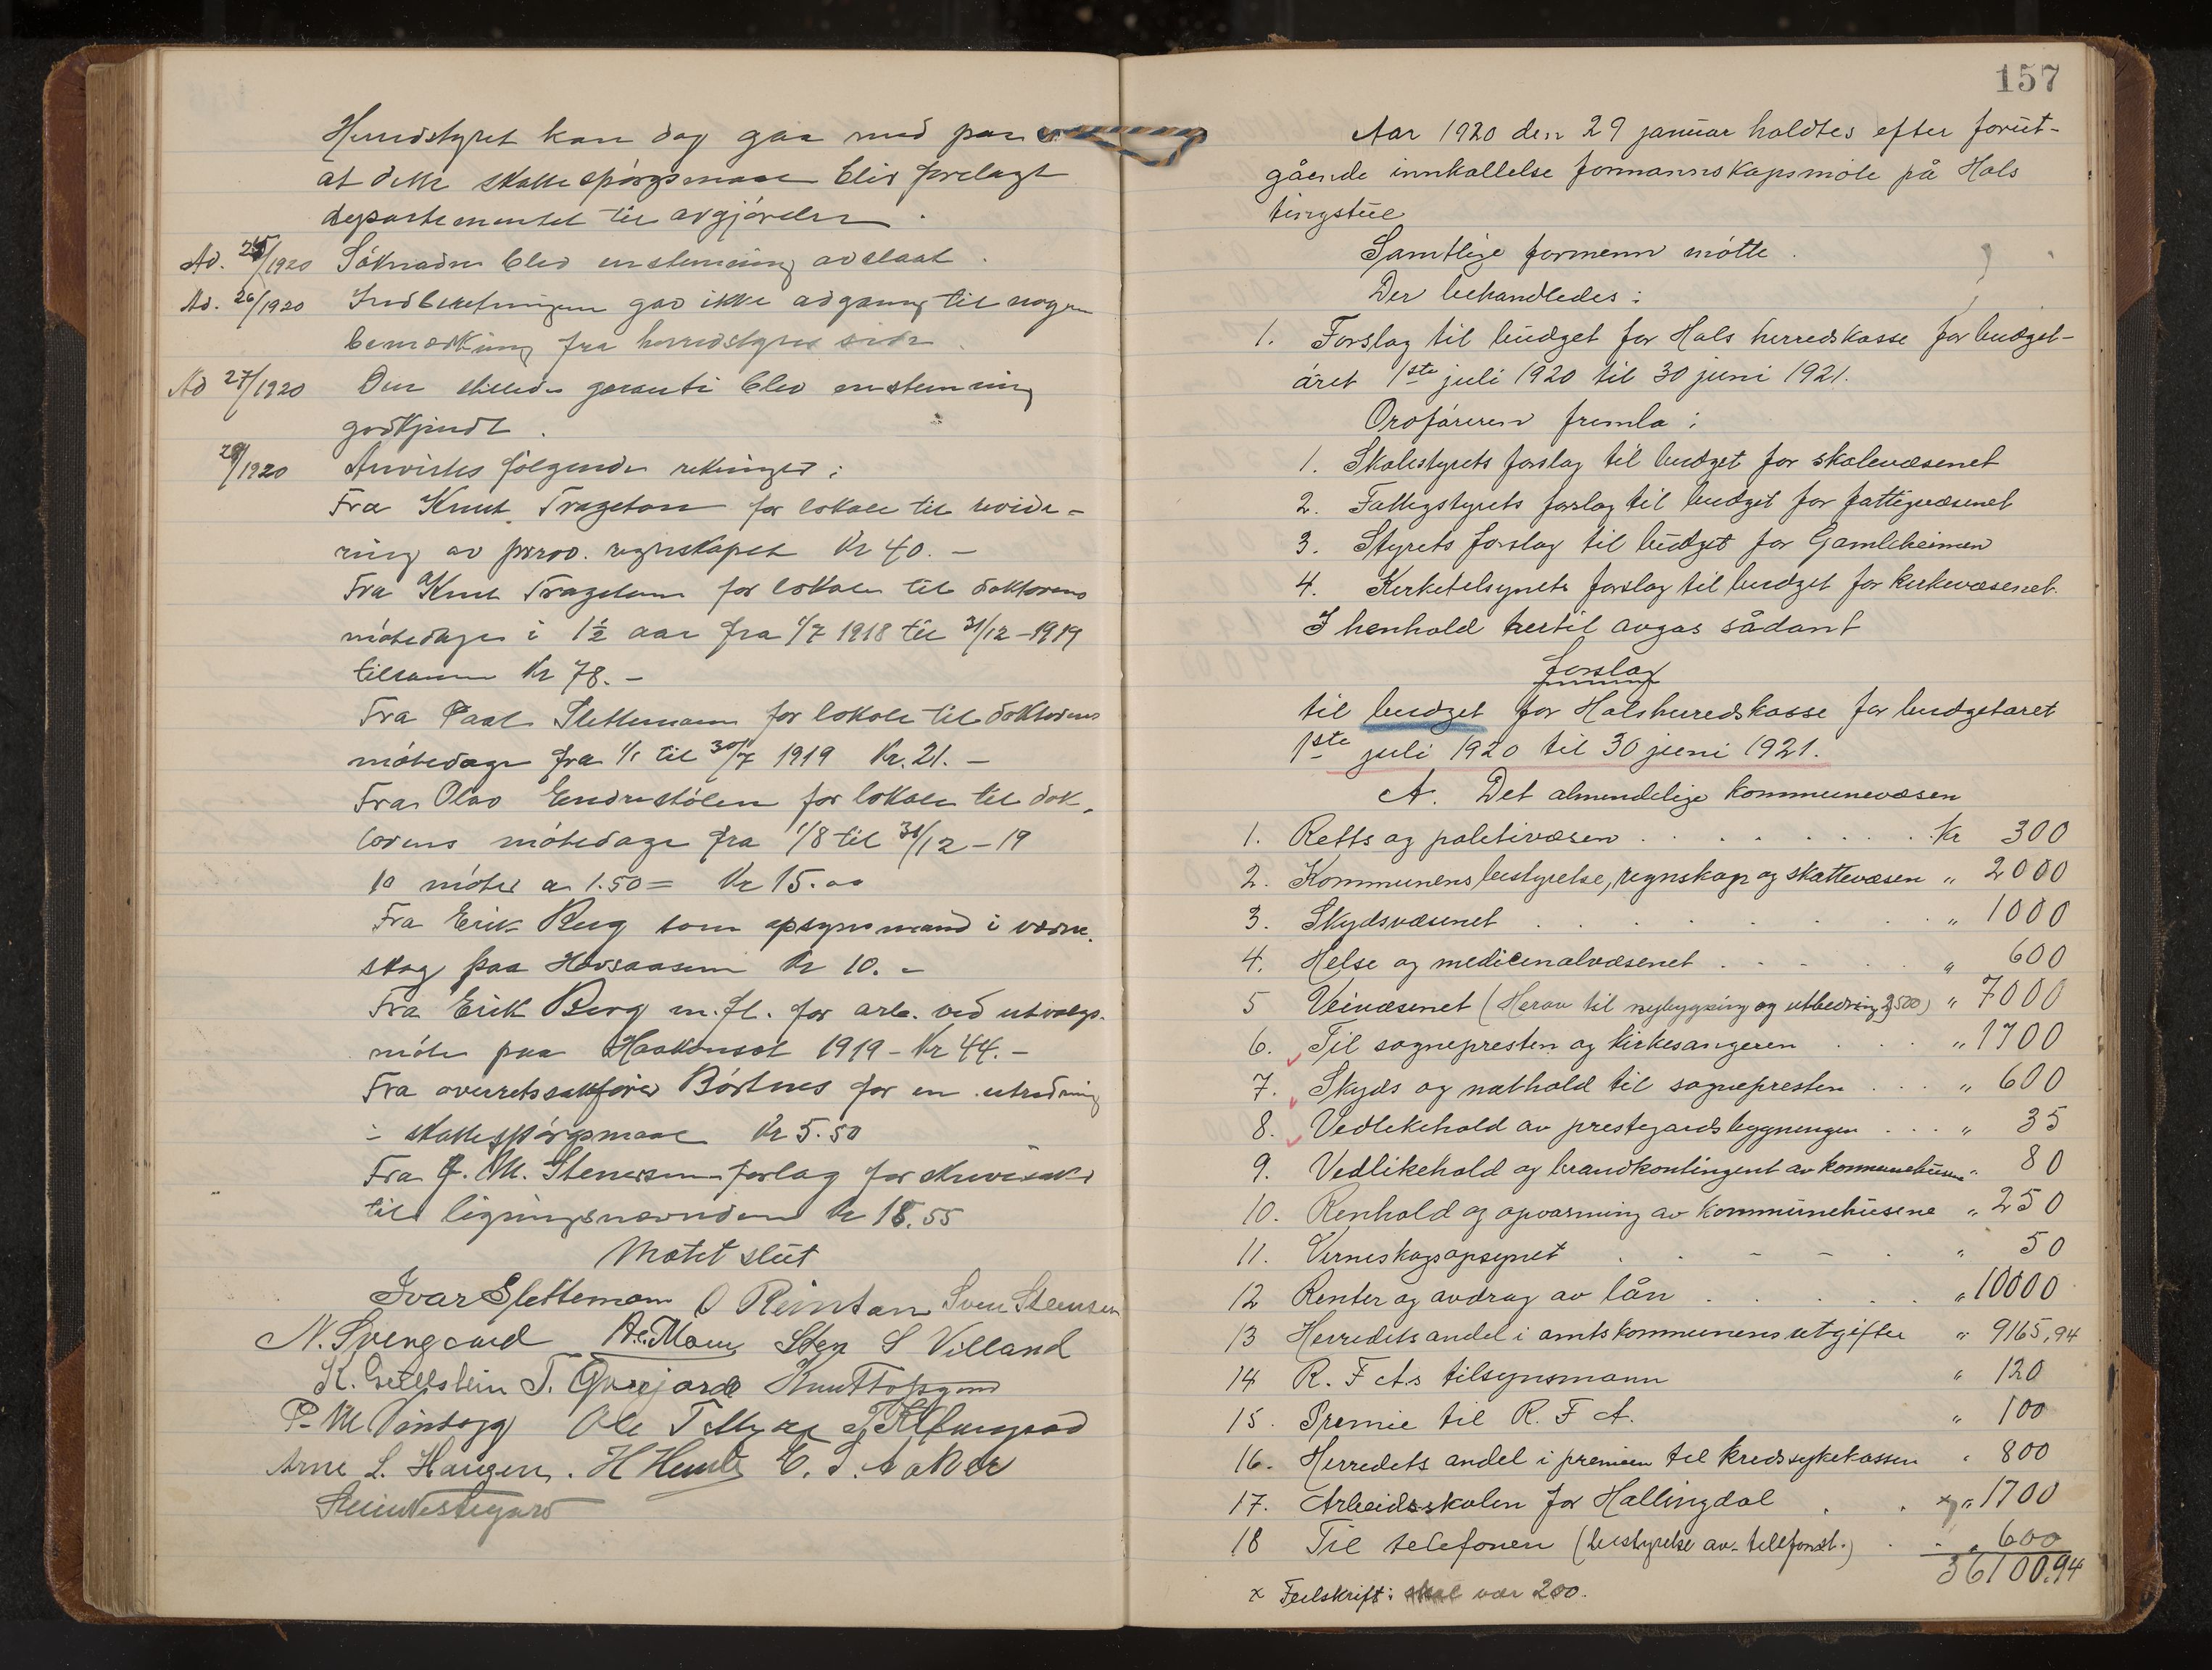 Herredstyret kan dog gaa med paa
at dette skattespörgsmaal blir forelagt
departementet til avgjörelse.
Ad. 25/1920 Söknaden blev enstemmig avslaat.
Ad. 26/1920 Indberetningen gav ikke adgang til nogen
bemærkning fra herredstyrets side.
Ad 27/1920 Den stillede garanti blev enstemmig
godkjendt.
28/1920 Anvistes fölgende rekninger:
Fra Knut Trageton for lokale til revide-
ring av regnskapet Kr 40.-
Fra Knut Trageton for lokale til doktorens
mötedager i 1½ aar fra 1/7 1918 til 31/12-1919
tilsammen Kr 78.-
Fra Paal Slettemoen for lokale til doktorens
mötedage fra 1/1 til 30/7 1919 Kr. 21.-
Fra Olav Endrestölen for lokale til dok-
torens mötedage fra 1/8 til 31/12-19
10 möter a 1.50 = Kr 15.00
Fra Erik Berg som opsynsmand i værne-
skog paa Hovsaasen Kr 10.-
Fra Erik Berg m.fl. for arb. ved utvalgs-
möte paa Haakonset 1919 - Kr 44.-
Fra overretssakförer Börtnes for en utredning
i skattespörgsmaal Kr 5.50
Fra J. M. Stenersens forlag for skrivesaker
til ligningsnævnden Kr 18.55
Mötet slut
Ivar Slettemoen O Reinton Sven Stensen
N. Svengaard Sten S Villand
K. Gullstein T.
P. M. Vindegg Ole T
Arne L. Haugen. H E. S. Aaker
Stein Vestegard
157
Aar 1920 den 29 januar holdtes efter forut-
gående innkallelse formannskapsmöte på Hols
tingstue
Samtlige formenn mötte.
Der behandledes:
1. Forslag til budget for Hols herredskasse for budget-
året 1ste juli 1920 til 30 juni 1921.
Ordföreren fremla:
1. Skolestyrets forslag til budget for skolevæsenet
2. Fattigstyrets forslag til budget for fattigvæsenet
3. Styrets forslag til budget for Gamleheimen
4. Kirketilsynets forslag til budget for kirkevæsenet.
I henhold hertil avgas sådant
forslag
til budget for Hols herredskasse for budgetaret
1ste juli 1920 til 30 juni 1921.
A. Det almindelige kommunevæsen
1. Retts og politivæsen . . . . . . . . Kr 300
2. Kommunens bestyrelse, regnskap og skattevæsen " 2000
3. Skydsvæsenet . . . . . . . " 1000
4. Helse og medicinalvæsenet . . . . " 600
5 Veivæsenet (Herav til nybygging og utbedring 2500) " 7000
6. Til sognepresten og kirkesangeren . . . " 1700
7. Skyds og natthold til sognepresten . . . " 600
8. Vedlikehold av prestegardsbygningen . . . " 35
9. Vedlikehold og brandkontingent av kommunehusene " 80
10. Renhold og opvarming av kommunehusene " 250
11. Verneskogsopsynet . . - - . " 50
12 Renter og avdrag av lån . . . . . " 10000
13 Herredets andel i amtskommunens utgifter " 9165,94
14 R. F. A.s tilsynsmann " 120
15. Premie til R. F. A. " 100
16. Herredets andel i premien til kredssykekassen " 800
17. Arbeidsskolen for Hallingdal . . x " 1700
18 Til telefonen (bestyrelse av telefonst.) . . " 600
36100.94
x Feilskrift: skal vær 200.